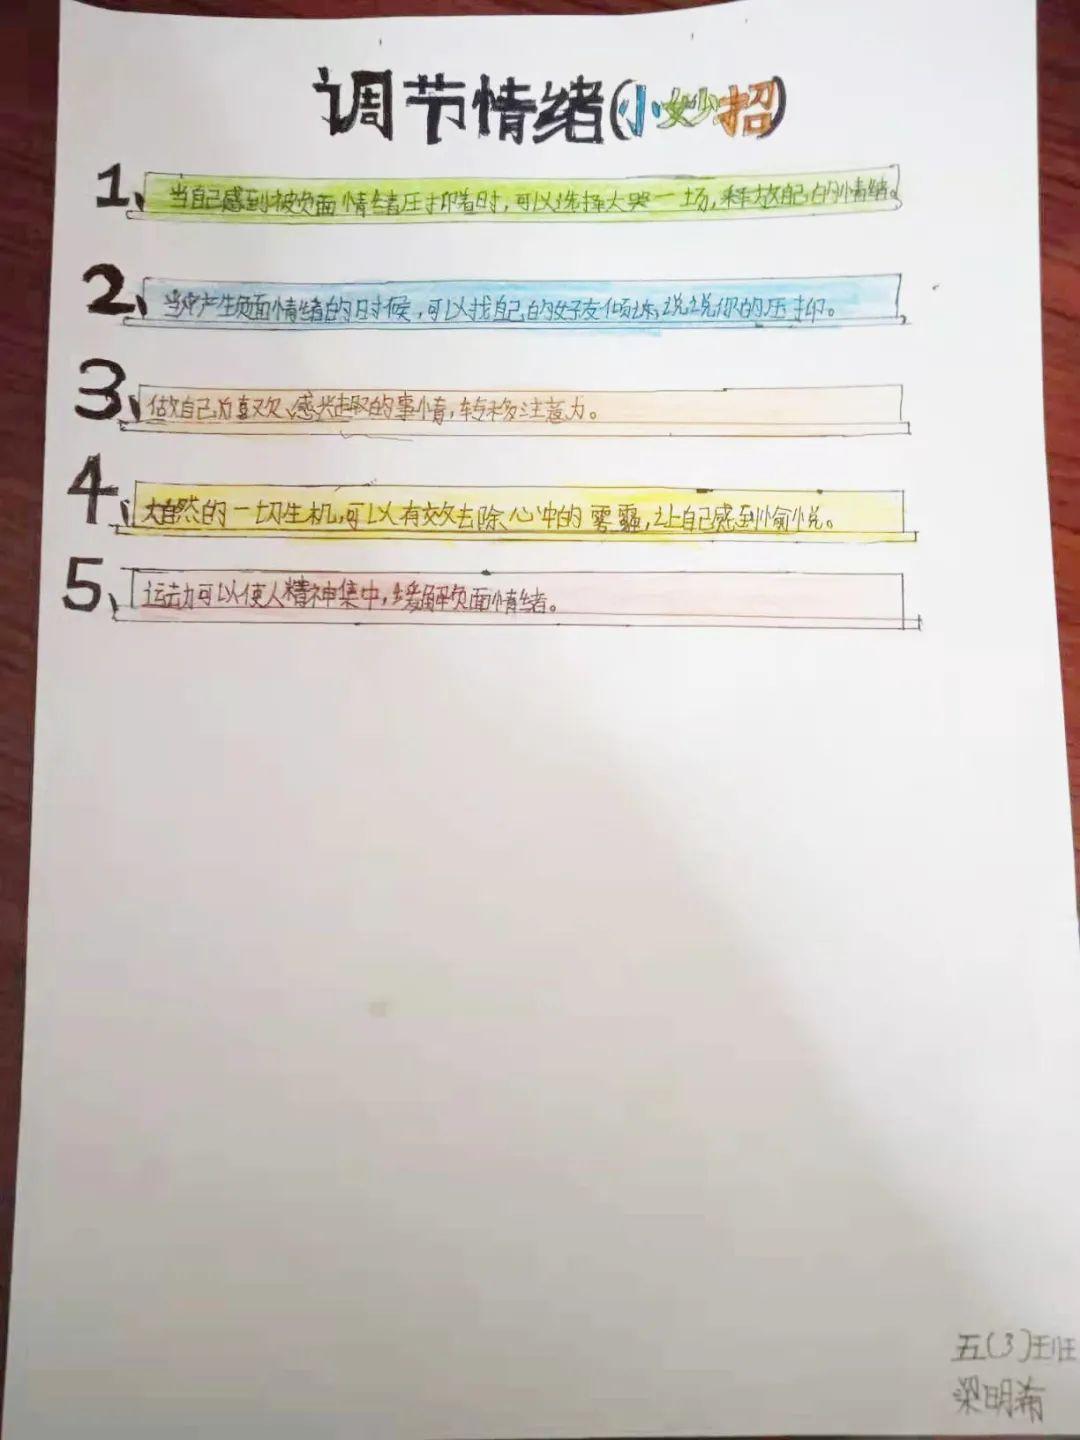 调节情绪(小妙招)
1、当自己感到被负面情绪压抑着时，可以选择大哭一场，释放自己的情绪。
2、当你产生负面情绪的时候，可以找自己的好友倾诉，说说你的压抑。
3、做自己为喜欢、感兴趣的事情，转移注意力。
4、大自然的一切生机，可以有效去除心中的雾霾，让自己感到愉悦。
5、运动可以使人精神集中，缓解负面情绪。
五(3)班
梁明希